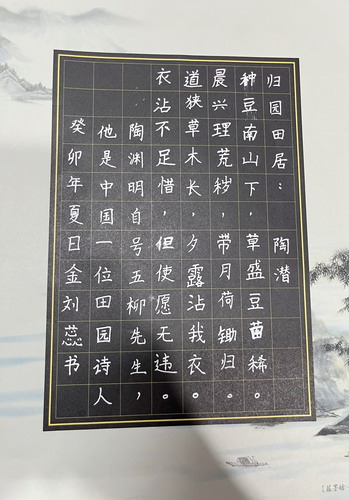 归园田居： 陶潜
种豆南山下，草盛豆苗稀。
晨兴理荒秽，带月荷锄归。
道狭草木长，夕露沾我衣。
衣沾不足惜，但使愿无违。
陶渊明自号五柳先生，
他是中国一位田园诗人
癸卯年夏日金刘蕊书